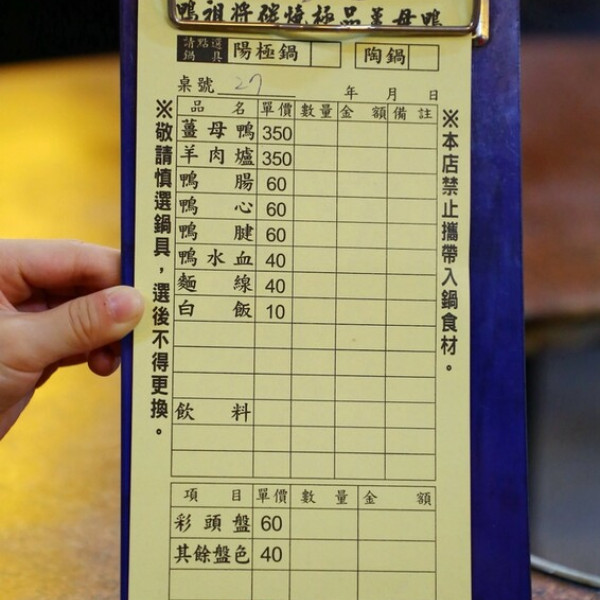 鴨祖將碳燒極品羊母鴨
請點選鍋具 陽極鍋 陶鍋
桌號 27 年 月 日
品名 單價 數量 金額 備註
薑母鴨 350
羊肉爐 350
鴨腸 60
鴨心 60
鴨腱 60
鴨水血 40
麵線 40
白飯 10
飲料
項目 單價 數量 金額
彩頭盤 60
其餘盤色 40
※敬請慎選鍋具，選後不得更換。
※本店禁止攜帶入鍋食材。